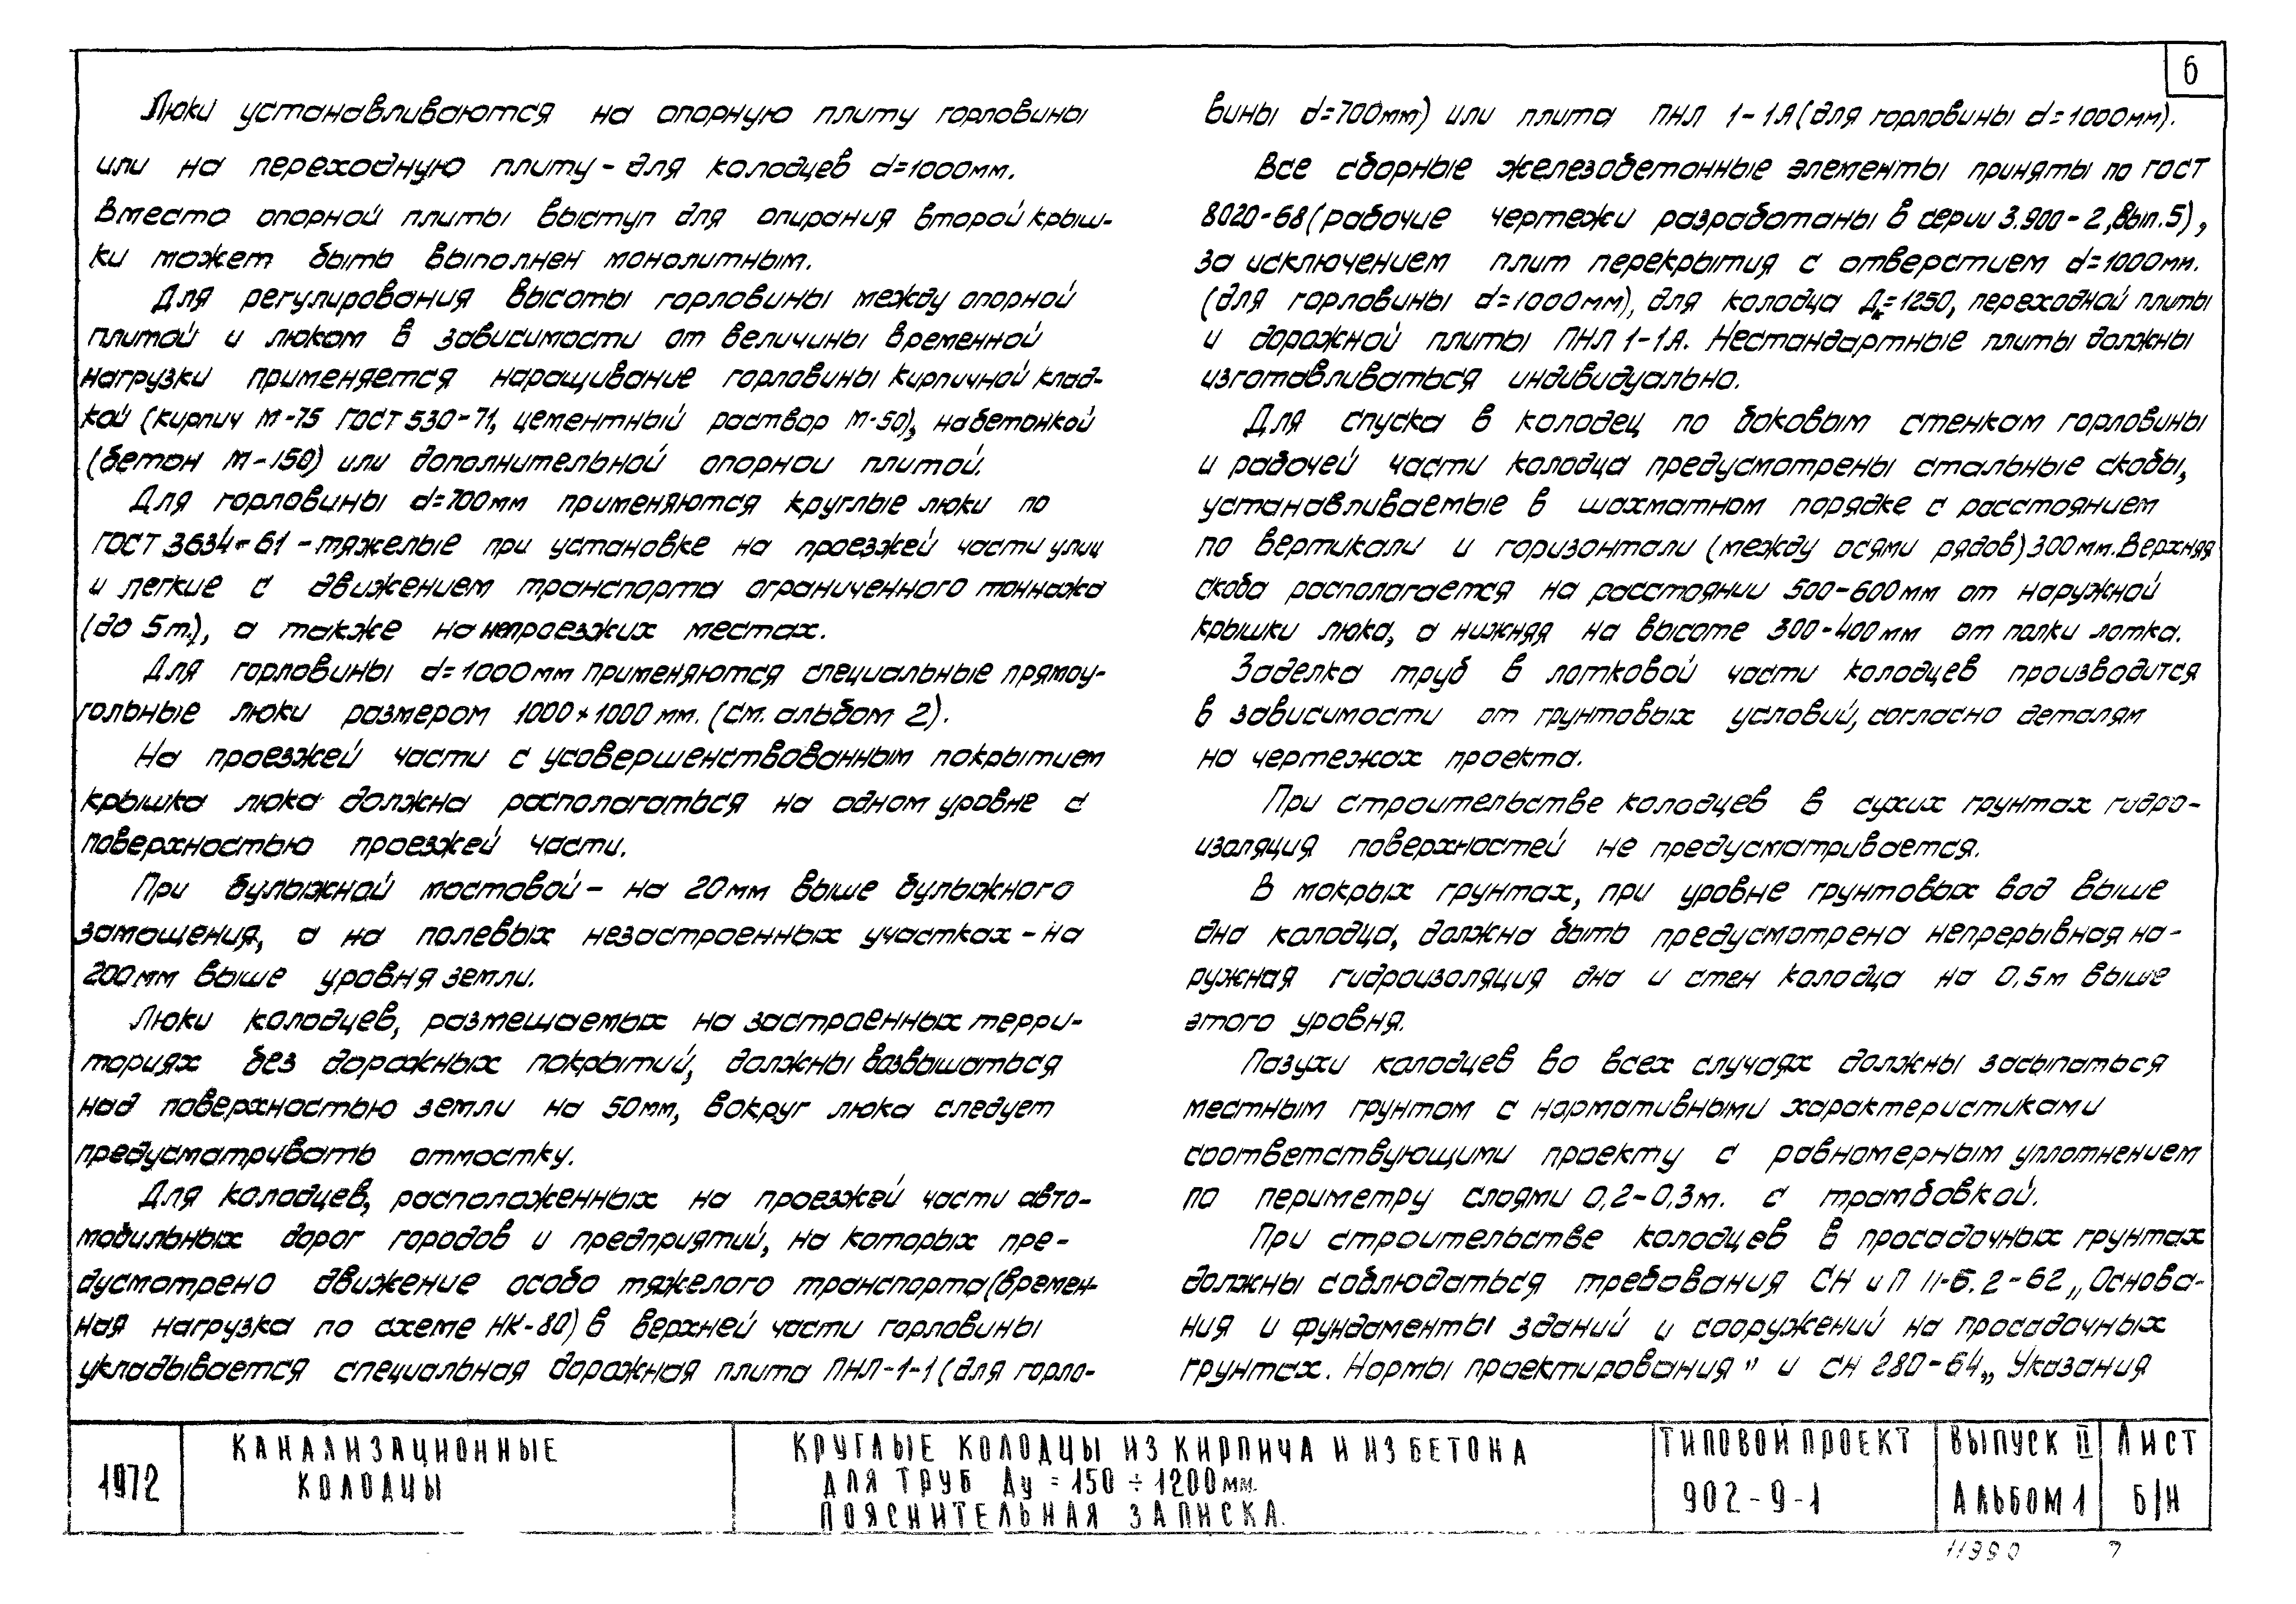 6
Люки устанавливаются на опорную плиту горловины
или на переходную плиту - для колодцев d=1000мм.
Вместо опорной плиты выступ для опирания второй крыш-
ки может быть выполнен монолитным.
Для регулирования высоты горловины между опорной
плитой и люком в зависимости от величины временной
нагрузки применяется наращивание горловины кирпичной клад-
кой (кирпич М-75 ГОСТ 530-71, цементный раствор М-50), набетонкой
(бетон М-150) или дополнительной опорной плитой.
Для горловины d=700мм применяются круглые люки по
ГОСТ 3634-61 - тяжелые при установке на проезжей части улиц
и легкие с движением транспорта ограниченного тоннажа
(до 5т.), а также на непроезжих местах.
Для горловины d=1000мм применяются специальные прямоу-
гольные люки размером 1000×1000 мм. (см. альбом 2).
На проезжей части с усовершенствованным покрытием
крышка люка должна располагаться на одном уровне с
поверхностью проезжей части.
При булыжной мостовой - на 20мм выше булыжного
замощения, а на полевых незастроенных участках - на
200мм выше уровня земли.
Люки колодцев, размещаемых на застроенных терри-
ториях без дорожных покрытий, должны возвышаться
над поверхностью земли на 50мм, вокруг люка следует
предусматривать отмостку.
Для колодцев, расположенных на проезжей части авто-
мобильных дорог городов и предприятий, на которых пре-
дусмотрено движение особо тяжелого транспорта (времен-
ная нагрузка по схеме НК-80) в верхней части горловины
укладывается специальная дорожная плита ПНЛ-1-1 (для горло-
вины d=700мм) или плита ПНЛ 1-1А (для горловины d=1000мм).
Все сборные железобетонные элементы приняты по ГОСТ
8020-68 (рабочие чертежи разработаны в серии 3.900-2, вып.5),
за исключением плит перекрытия с отверстием d=1000мм.
(для горловины d=1000мм), для колодца Дк=1250, переходной плиты
и дорожной плиты ПНЛ 1-1А. Нестандартные плиты должны
изготавливаться индивидуально.
Для спуска в колодец по боковым стенкам горловины
и рабочей части колодца предусмотрены стальные скобы,
устанавливаемые в шахматном порядке с расстоянием
по вертикали и горизонтали (между осями рядов) 300мм. Верхняя
скоба располагается на расстоянии 500-600мм от наружной
крышки люка, а нижняя на высоте 300-400мм от полки лотка.
Заделка труб в лотковой части колодцев производится
в зависимости от грунтовых условий, согласно деталям
на чертежах проекта.
При строительстве колодцев в сухих грунтах гидро-
изоляция поверхностей не предусматривается.
В мокрых грунтах, при уровне грунтовых вод выше
дна колодца, должна быть предусмотрена непрерывная на-
ружная гидроизоляция дна и стен колодца на 0,5м выше
этого уровня.
Пазухи колодцев во всех случаях должны засыпаться
местным грунтом с нормативными характеристиками
соответствующими проекту с равномерным уплотнением
по периметру слоями 0,2-0,3м. с трамбовкой.
При строительстве колодцев в просадочных грунтах
должны соблюдаться требования СН и П II-Б.2-62 „Основа-
ния и фундаменты зданий и сооружений на просадочных
грунтах. Нормы проектирования" и СН 280-64 „ Указания
1972
КАНАЛИЗАЦИОННЫЕ
КОЛОДЦЫ
КРУГЛЫЕ КОЛОДЦЫ ИЗ КИРПИЧА И ИЗ БЕТОНА
ДЛЯ ТРУБ Ду = 150 ÷ 1200мм.
ПОЯСНИТЕЛЬНАЯ ЗАПИСКА.
ТИПОВОЙ ПРОЕКТ
902-9-1
ВЫПУСК II
АЛЬБОМ 1
ЛИСТ
Б/Н
11990 7